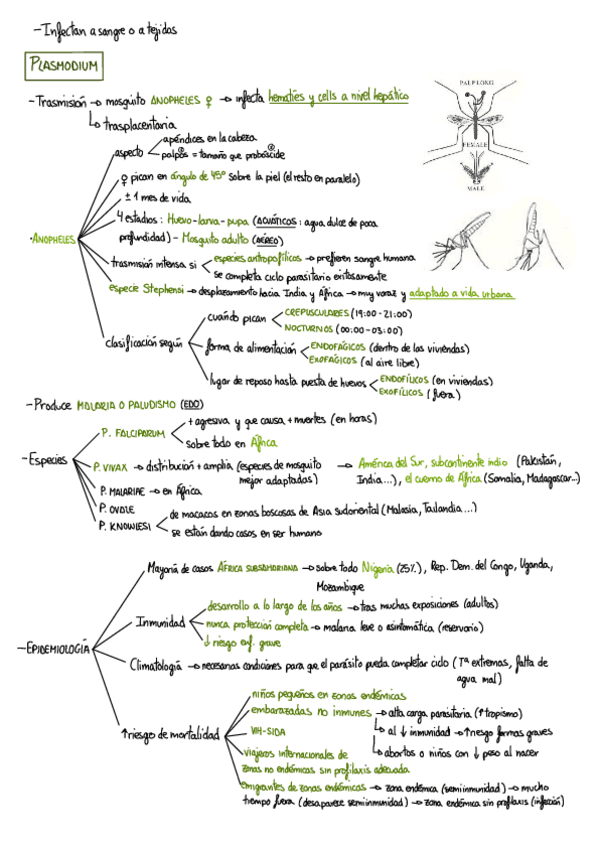 - Infectan a sangre o a tejidos
PLASMODIUM
- Trasmisión → mosquito ANOPHELES ♀ → infecta hematíes y cells a nivel hepático
↳ trasplacentaria
PALP LONG
FEMALE
MALE
· ANOPHELES
aspecto
apéndices en la cabeza
palpos = tamaño que probóscide
♀ pican en ángulo de 45º sobre la piel (el resto en paralelo)
± 1 mes de vida
4 estadios: Huevo-larva-pupa (ACUÁTICOS: agua dulce de poca
profundidad) - Mosquito adulto (AÉREO)
trasmisión intensa si
especies antropofílicos → prefieren sangre humana
se completa ciclo parasitario exitosamente
especie Stephensi → desplazamiento hacia India y África → muy voraz y adaptado a vida urbana
clasificación según
cuándo pican
CREPUSCULARES (19:00-21:00)
NOCTURNOS (00:00-03:00)
forma de alimentación
ENDOFÁGICOS (dentro de las viviendas)
EXOFÁGICOS (al aire libre)
lugar de reposo hasta puesta de huevos
ENDOFÍLICOS (en viviendas)
EXOFÍLICOS (fuera)
- Produce MALARIA O PALUDISMO (EDO)
- Especies
P. FALCIPARUM
+ agresiva y que causa + muertes (en horas)
sobre todo en África
P. VIVAX → distribución + amplia (especies de mosquito
mejor adaptadas)
→ América del Sur, subcontinente indio (Pakistán,
India...), el cuerno de África (Somalia, Madagascar...)
P. MALARIAE → en África
P. OVALE
P. KNOWLESI
de macacos en zonas boscosas de Asia sudoriental (Malasia, Tailandia...)
se están dando casos en ser humano
- EPIDEMIOLOGÍA
Mayoría de casos ÁFRICA SUBSAHARIANA → sobre todo Nigeria (25%), Rep. Dem. del Congo, Uganda,
Mozambique
Inmunidad
desarrollo a lo largo de los años → tras muchas exposiciones (adultos)
nunca protección completa → malaria leve o asintomática (reservorio)
↓ riesgo enf. grave
Climatología → necesarias condiciones para que el parásito pueda completar ciclo (Tª extremas, falta de
agua mal)
↑ riesgo de mortalidad
niños pequeños en zonas endémicas
embarazadas no inmunes → alta carga parasitaria (↑ tropismo)
↳ al ↓ inmunidad → ↑ riesgo formas graves
↳ abortos o niños con ↓ peso al nacer
VIH-SIDA
viajeros internacionales de
zonas no endémicas sin profilaxis adecuada
emigrantes de zonas endémicas → zona endémica (semiinmunidad) → mucho
tiempo fuera (desaparece semiinmunidad) → zona endémica sin profilaxis (infección)